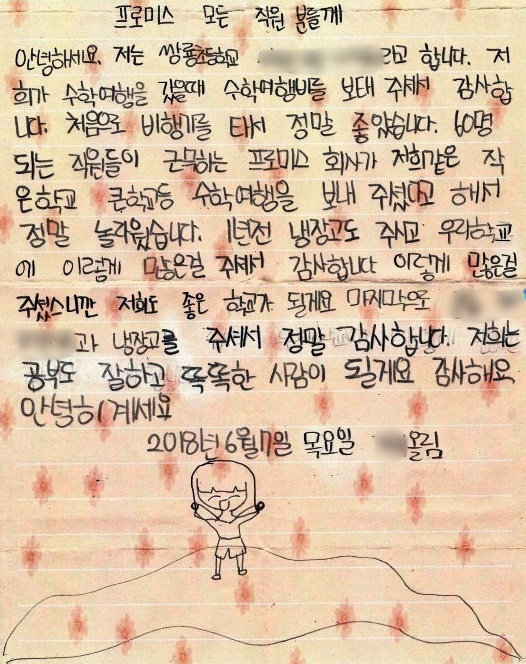 프로미스 모든 직원 분들께
안녕하세요. 저는 쌍룡초등학교 라고 합니다. 저
희가 수학여행을 갔을때 수학여행비를 보태 주셔서 감사합
니다. 처음으로 비행기를 타서 정말 좋았습니다. 60명
되는 직원들이 근무하는 프로미스 회사가 저희같은 작
은학교 큰학교등 수학여행을 보내 주셨다고 해서
정말 놀라웠습니다. 1년전 냉장고도 주시고 우리학교
에 이렇게 많은걸 주셔서 감사합니다 이렇게 많은걸
주셨스니깐 저희도 좋은 학교가 될게요 마지막으로
과 냉장고를 주셔서 정말 감사합니다. 저희는
공부도 잘하고 똑똑한 사람이 될게요 감사해요
안녕히계세요
2018년 6월 7일 목요일 올림